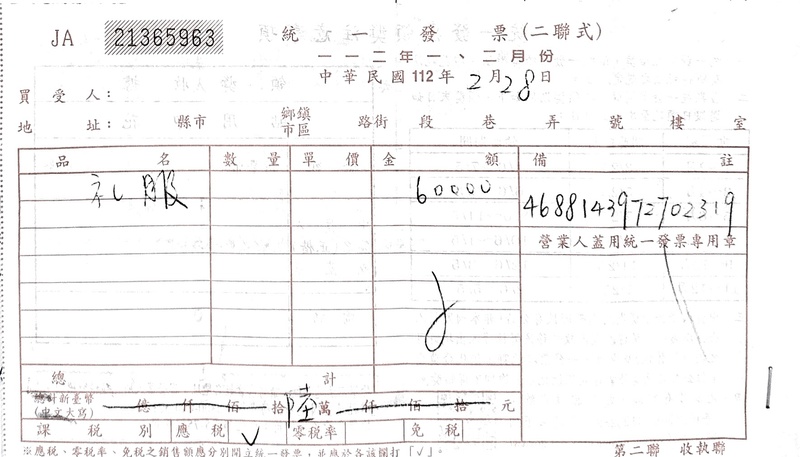 JA 21365963 統一發票(二聯式)
一一二年一、二月份
中華民國112年2月28日
買受人:
地址: 縣市 鄉鎮市區 路街 段 巷 弄 號 樓 室
品名 數量 單價 金額 備註
礼服 60000 4688143972702319
營業人蓋用統一發票專用章
總計
總計新臺幣(中文大寫) 億 仟 佰 拾 陸 萬 仟 佰 拾 元
課稅別 應稅 V 零稅率 免稅
※應稅、零稅率、免稅之銷售額應分別開立統一發票,並應於各該欄打「√」。
第二聯 收執聯